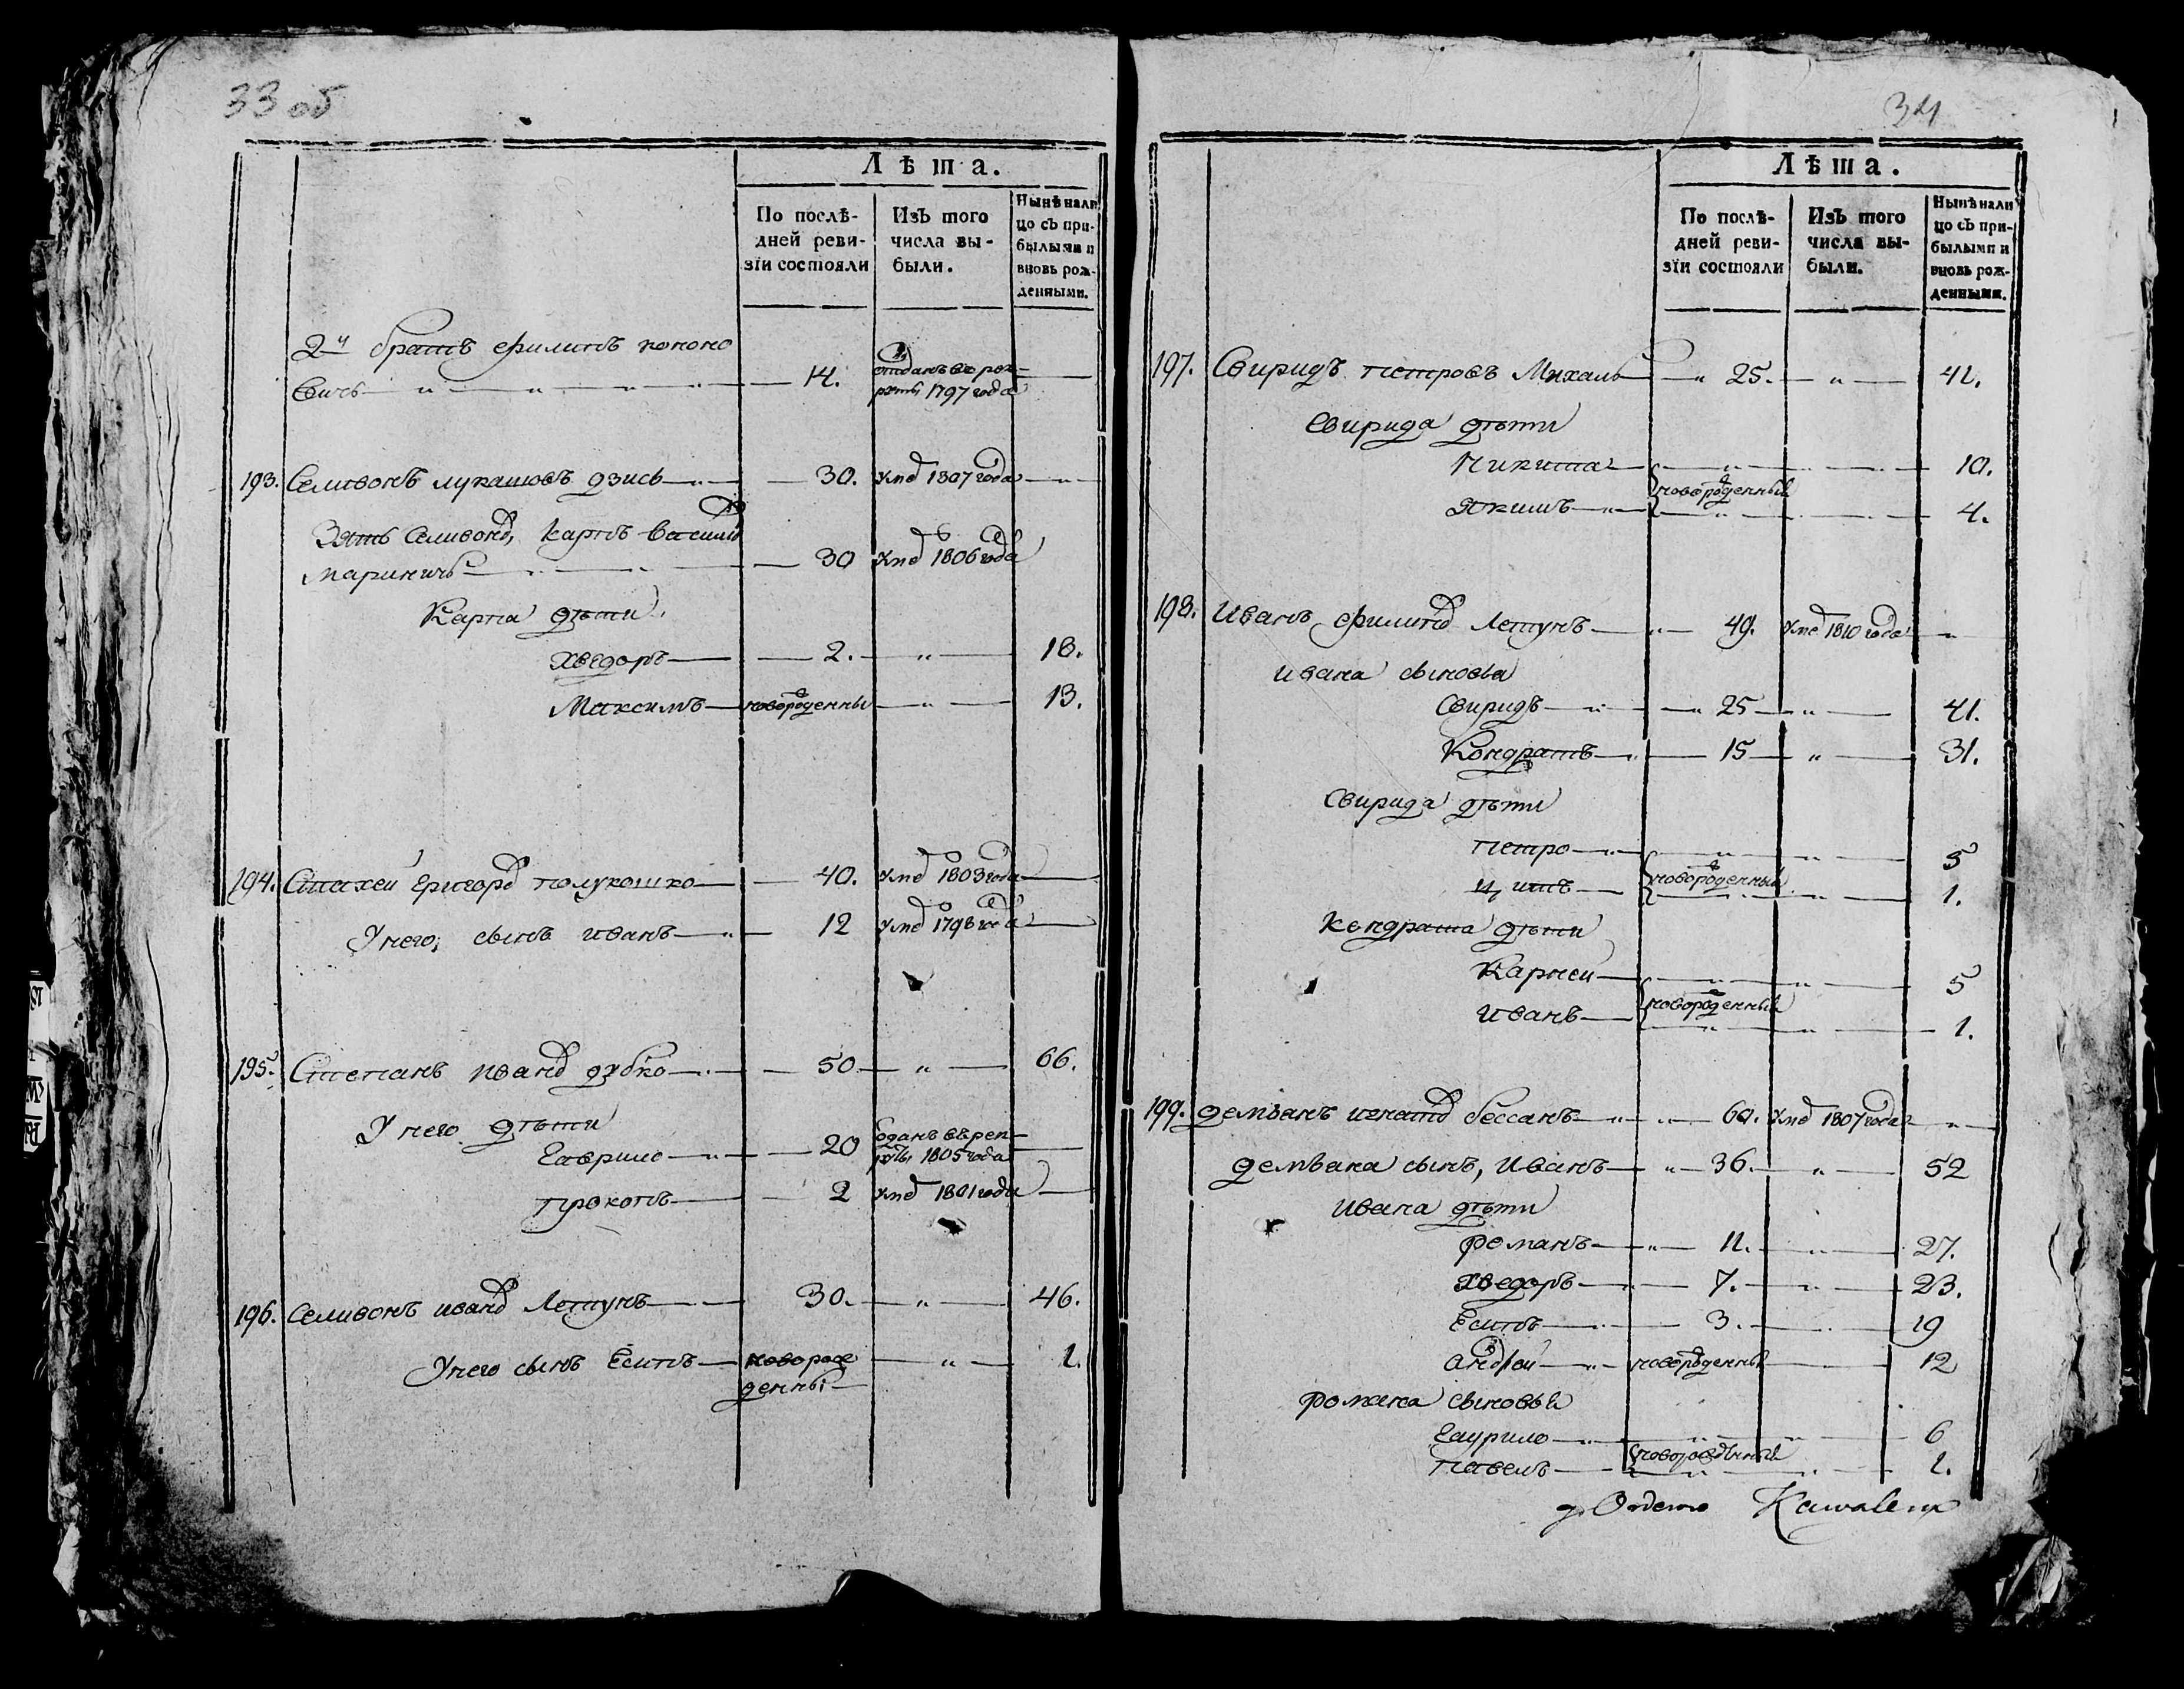 33 об
Лѣта.
По послѣ-
дней реви-
зїи состояли
Изъ того
числа вы-
были.
Нынѣ нали
цо съ при-
былыми и
вновь рож-
денными.
2й братъ филипъ кононо
вичь — " — " — " — " — 14. отданъ въ рек-
руты 1797 года
193. Селивонъ лукашовъ дзись — 30. умре 1807 года — " —
Зять Селивона, карпъ Василь
мариничь — 30 умре 1806 года
Карпа дѣти
хведоръ — 2. — " — 18.
Максимъ — новорожденны — " — 13.
194. Стахей григоро полукошко — 40. умре 1803 года —
У него, сынъ иванъ — " — 12 умре 1798 года —
195. Степанъ ивано дубко — 50 — " — 66.
У него дѣти
Гаврило — " — 20 отданъ въ рек-
руты 1805 года
прокопъ — 2 умре 1801 года —
196. Селивонъ ивано Летунъ — 30. — " — 46.
У него сынъ Есипъ — новорож
денны — " — 1.
34
Лѣта.
По послѣ-
дней реви-
зїи состояли
Изъ того
числа вы-
были.
Нынѣ нали
цо съ при-
былыми и
вновь рож-
денными.
197. Свиридъ петровъ Михаль — " 25. — " — 41.
Свирида дѣти
Никита — " — 10.
новорожденный
Якимъ — " — 4.
198. Иванъ филипо Летунъ — " — 49. умре 1810 года — "
ивана сыновья
Свиридъ — " — " 25 — " — 41.
Кондратъ — " — 15 — " — 31.
Свирида дѣти
петро — " — " — 5
новорожденный
— " — " — 1.
кондрата дѣти
Карней — " — " — 5
новорожденный
иванъ — " — " — 1.
199. демьянъ игнато бессанъ — " — " — 60. умре 1807 года — " —
демьяна сынъ, Иванъ — " — 36. — " — 52
ивана дѣти
романъ — " — 11. — " — 27.
хведоръ — " — 7. — " — 23.
Есипъ — " — 3. — " — 19
андрей — " — новорожденны — 12
романа сыновья
гаурило — " — " — " — 6
новорожденный
павелъ — " — " — 1.